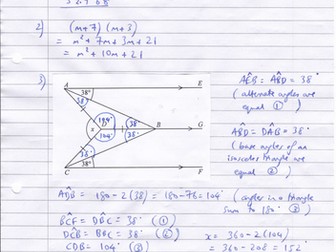 2) (m+7)(m+3)
= m² + 7m + 3m + 21
= m² + 10m + 21
3)
A 38° E
38°
104° 38° B G
x D 104° 38°
38°
C 38° F
AĈB = AB̂D = 38°
(alternate angles are
equal ①)
AB̂D = DÂB = 38°
(base angles of an
isosceles triangle are
equal ②)
AD̂B = 180-2(38) = 180-76 = 104° (angles in a triangle
sum to 180° ③)
BĈF = DB̂C = 38° ①
DĈB = 38° ②
CDB = 104° ③
x = 360-2(104)
= 360-208 = 152°